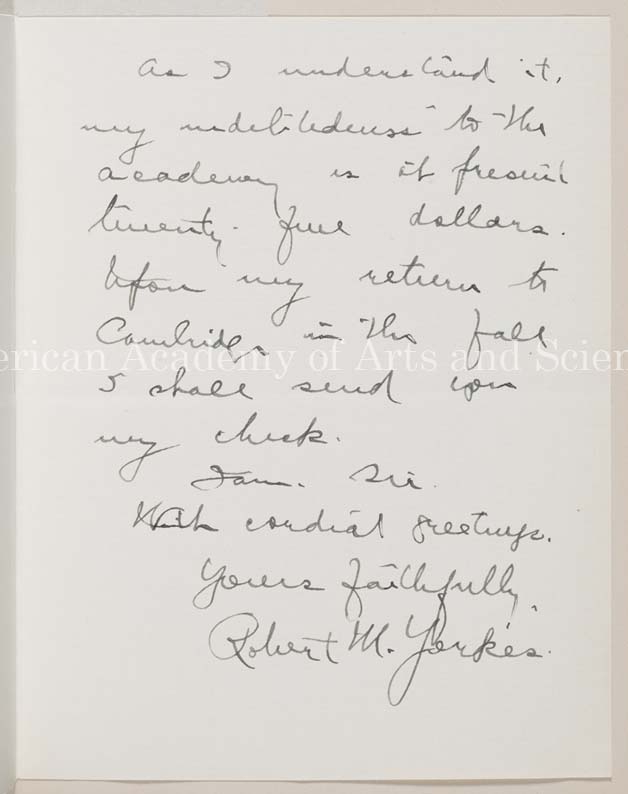 As I understand it,
my indebtedness to the
academy is at present
twenty-five dollars.
Upon my return to
Cambridge in the fall
American Academy of Arts and Scien
I shall send you
my check.
I am, Sir.
With cordial greetings.
Yours faithfully,
Robert M. Yerkes.